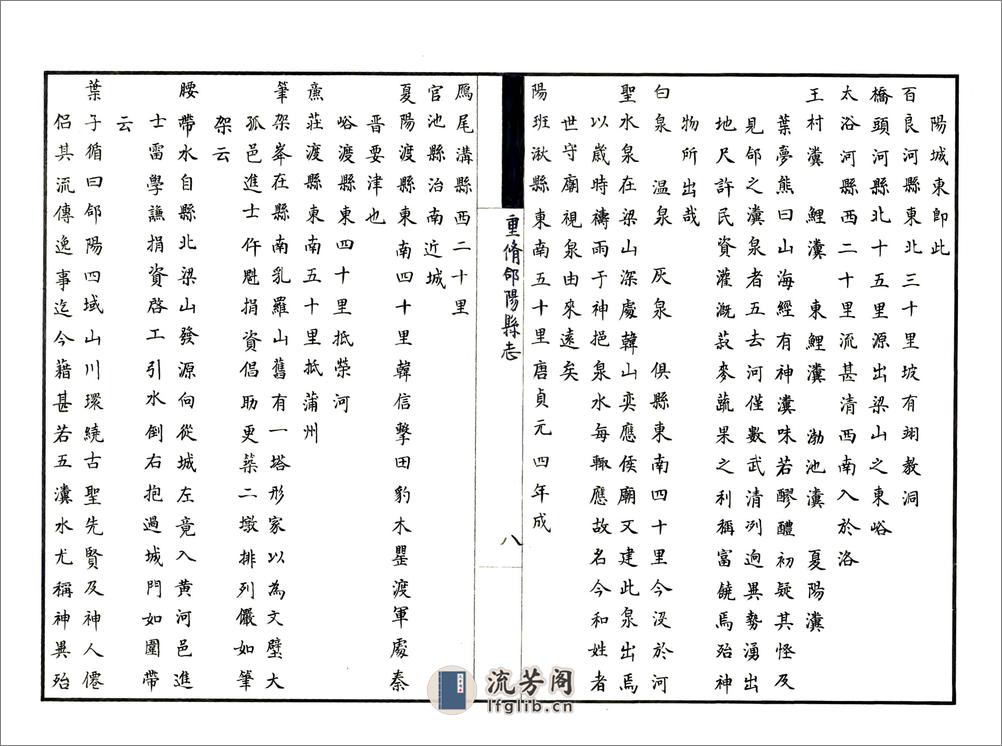 陽城東即此
百良河縣東北三十里坡有翊教洞
橋頭河縣北十五里源出梁山之東峪
太浴河縣西二十里流甚清西南入於洛
王村瀵　鯉瀵　東鯉瀵　渤池瀵　夏陽瀵
葉夢熊曰山海經有神瀵味若醪醴初疑其怪及
見郃之瀵泉者五去河僅數武清冽逈異勢湧出
地尺許民資灌溉菽麥蔬果之利稱富饒焉殆神
物所出哉
白泉　温泉　灰泉　俱縣東南四十里今沒於河
聖水泉在梁山深處韓山奕應侯廟又建此泉出焉
以歲時禱雨于神挹泉水每輒應故名今和姓者
世守廟視泉由來遠矣
陽班湫縣東南五十里唐貞元四年成
重脩郃陽縣志
八
鴈尾溝縣西二十里
官池縣治南近城
夏陽渡縣東南四十里韓信擊田豹木罌渡軍處秦
晉要津也
峪渡縣東四十里抵榮河
䕠莊渡縣東南五十里抵蒲州
筆架峯在縣南乳羅山舊有一塔形家以為文壁大
孤邑進士仵魁捐資倡助更築二墩排列儼如筆
架云
腰帶水自縣北梁山發源向從城左竟入黄河邑進
士雷學譙捐資啓工引水倒右抱過城門如圍帶
云
葉子循曰郃陽四域山川環繞古聖先賢及神人僊
侶其流傳逸事迄今藉甚若五瀵水尤稱神異殆
流芳阁
lfglib.cn